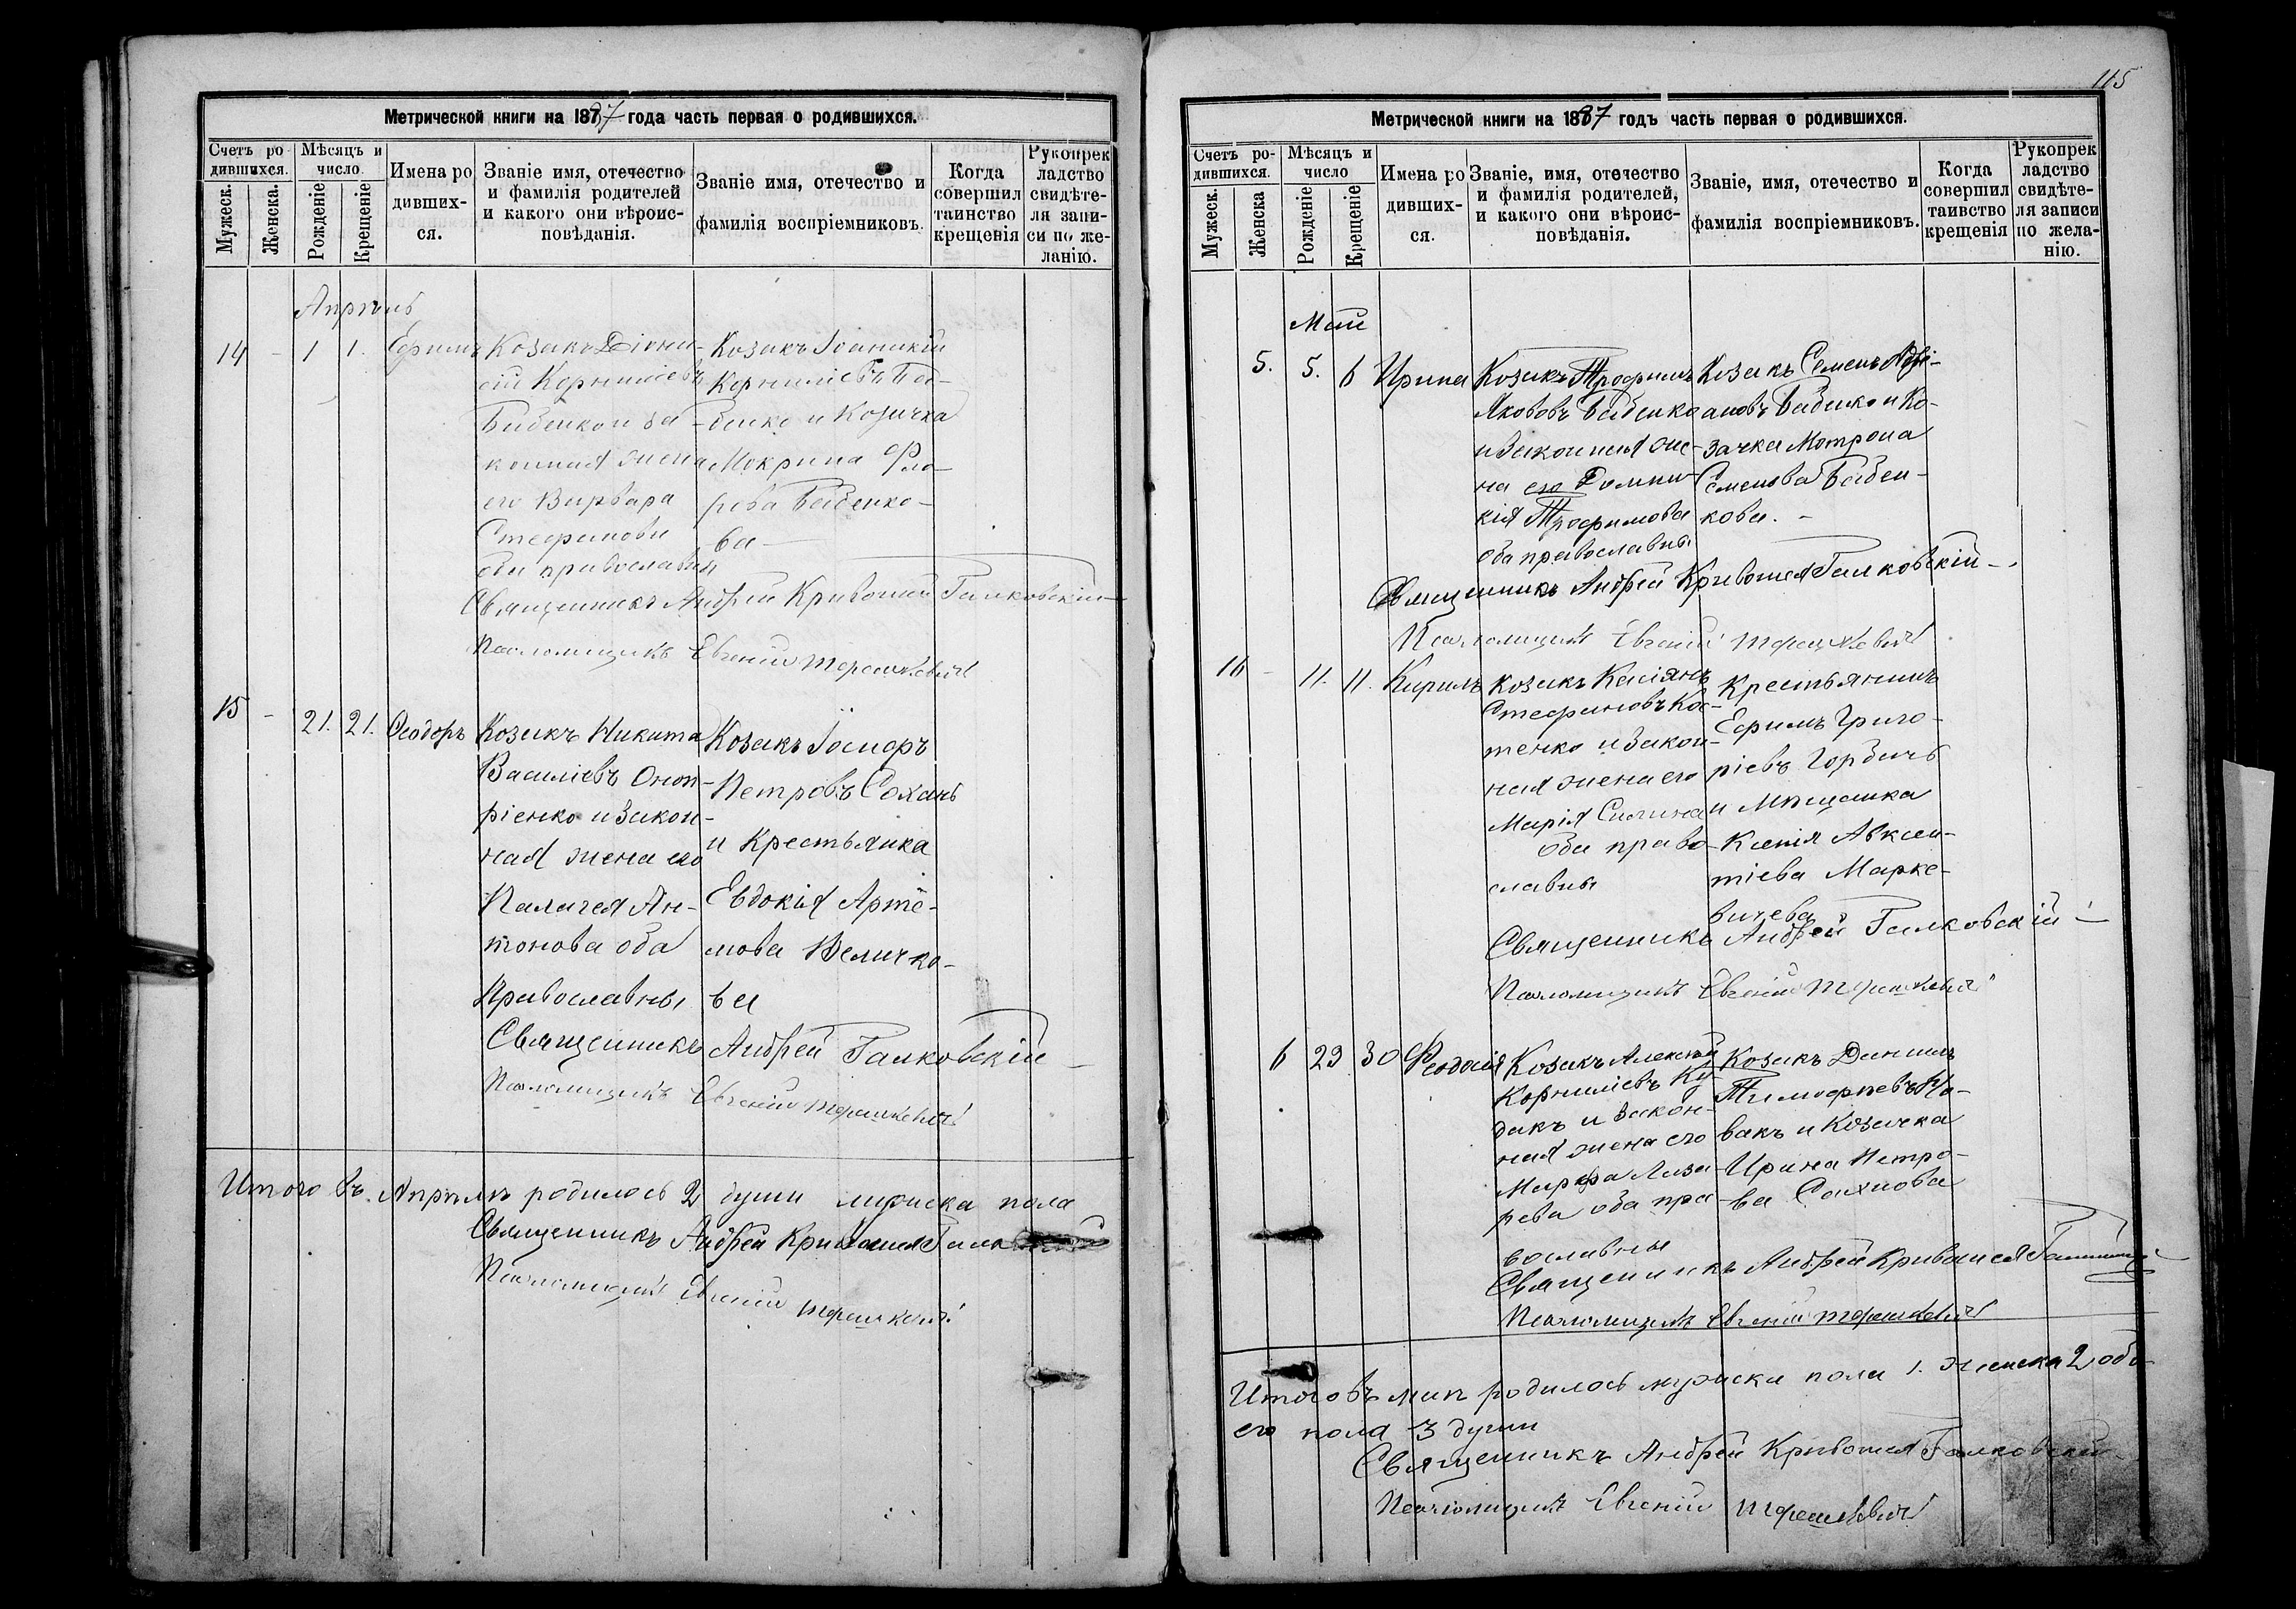 Метрической книги на 1887 года часть первая о родившихся.
Счетъ ро
дившихся.
Мѣсяцъ и
число.
Мужеск.
Женска.
Рожденіе
Крещеніе
Имена ро
дивших-
ся.
Званіе имя, отечество
и фамилія родителей
и какого они вѣроис-
повѣданія.
Званіе имя, отечество и
фамилія воспріемниковъ.
Когда
совершил
таинство
крещенія
Рукопрек
ладство
свидѣте-
ля запи-
си по же-
ланію.
Апрѣль
14 - 1 1. Ефримъ
Козакъ Діони-
сій Корниліевъ
Бабенко и за-
конная жена
его Варвара
Стефанова
оба православны
Козакъ Іоаникій
Корниліевъ Ба-
бенко и Козачка
Мокрина Фло-
рова Бабенко-
ва
Священникъ Андрей Кривошея Галковскій
Псаломщикъ Евгеній Терешкевичъ
15 - 21. 21. Феодоръ
Козакъ Никита
Василіевъ Оноп-
ріенко и закон-
ная жена его
Палагея Ан-
тонова оба
Православны
Козакъ Іосифъ
Петровъ Сохань
и Крестьянка
Евдокія Артё-
мова Величко-
ва
Священникъ Андрей Галковскій
Псаломщикъ Евгеній Терешкевичъ
Итого въ Апрѣлѣ родилось 2 души мужска пола
Священникъ Андрей Кривошея Галк
Псаломщикъ Евгеній Терешкевичъ
115
Метрической книги на 1887 годъ часть первая о родившихся.
Счетъ ро-
дившихся.
Мѣсяцъ и
число
Мужеск.
Женска
Рожденіе
Крещеніе
Имена ро
дивших-
ся.
Званіе, имя, отечество
и фамилія родителей,
и какого они вѣроис-
повѣданія.
Званіе, имя, отечество и
фамилія воспріемниковъ.
Когда
совершил
таивство
крещенія
Рукопрек
ладство
свидѣте-
ля записи
по жела-
нію.
Май
5. 5. 6 Ирина
Козакъ Трофимъ
Якововъ Бабенко
и законная же-
на его Домни-
кія Трофимова
оба православны
Козакъ Семенъ Адрі-
ановъ Бабенко и Ко-
зачка Мотрона
Семенова Бабен-
кова. -
Священникъ Андрей Кривошея Галковскій
Псаломщикъ Евгеній Терешкевичъ
16 - 11. 11. Кирилъ
Козакъ Касіянъ
Стефановъ Кос-
тенко и закон-
ная жена его
Марія Силина
оба право-
славны
Крестьянинъ
Ефимъ Григо-
ріевъ Горбачъ
и Мѣщанка
Ксенія Авксен-
тіева Марке-
вичева
Священникъ Андрей Галковскій
Псаломщикъ Евгеній Терешкевичъ
6 29 30 Феодосія
Козакъ Алексѣй
Корниліевъ Ку-
дакъ и закон-
ная жена его
Марфа Лаза-
рева оба пра-
вославны
Козакъ Даніилъ
Тимофѣевъ Но-
вакъ и Козачка
Ирина Петро-
ва Сахнова
Священникъ Андрей Кривошея Галковскій
Псаломщикъ Евгеній Терешкевичъ
Итого въ маѣ родилось мужска пола 1. женска 2 обо-
его пола 3 души
Священникъ Андрей Кривошея Галковскій
Псаломщикъ Евгеній Терешкевичъ